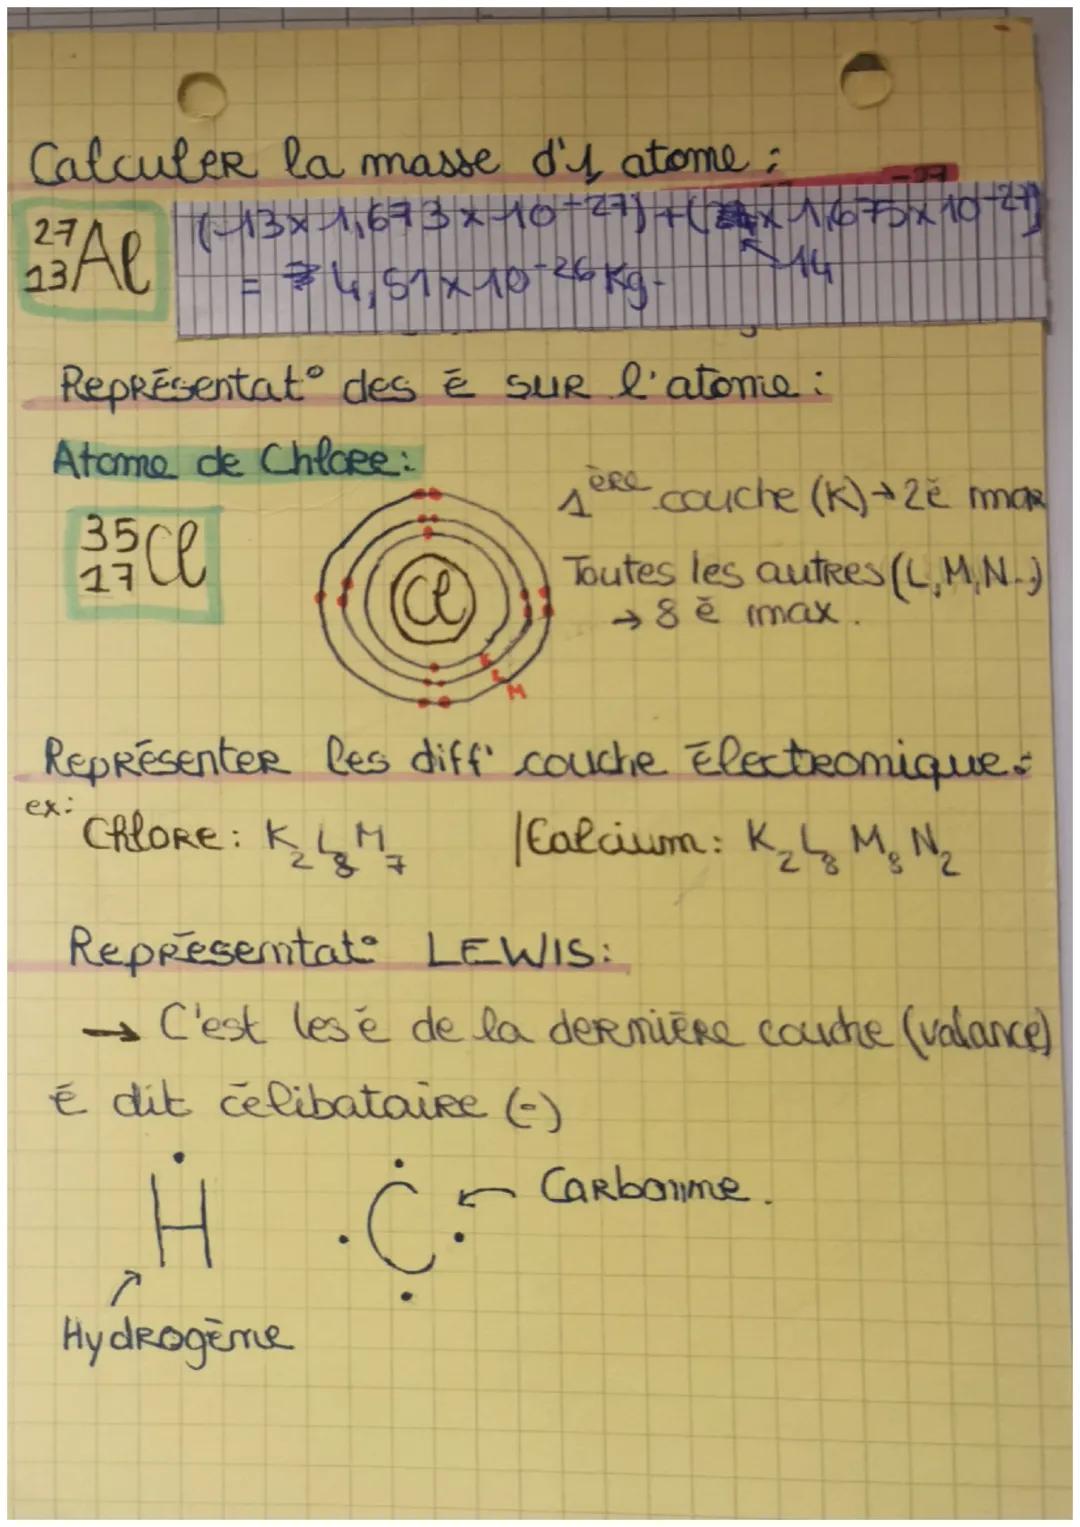 Calculer la masse d'1 atome :
-27
27
13 Al
(13 x 1,673 x 10^-27) + ( x 1,675 x 10^-27)
14
= 4,51 x 10^-26 Kg.
Représentat° des é sur l'atome :
Atome de Chlore :
35
17 Cl
Cl
K
L
M
1ère couche (K) → 2é max
Toutes les autres (L, M, N..)
→ 8 é max.
Représenter les diff' couche électronique :
ex :
Chlore : K2 L8 M7 | Calcium : K2 L8 M8 N2
Représentat° LEWIS :
→ C'est les é de la dernière couche (valance)
é dit célibataire (-)
H
C
← Carbonne.
Hydrogène